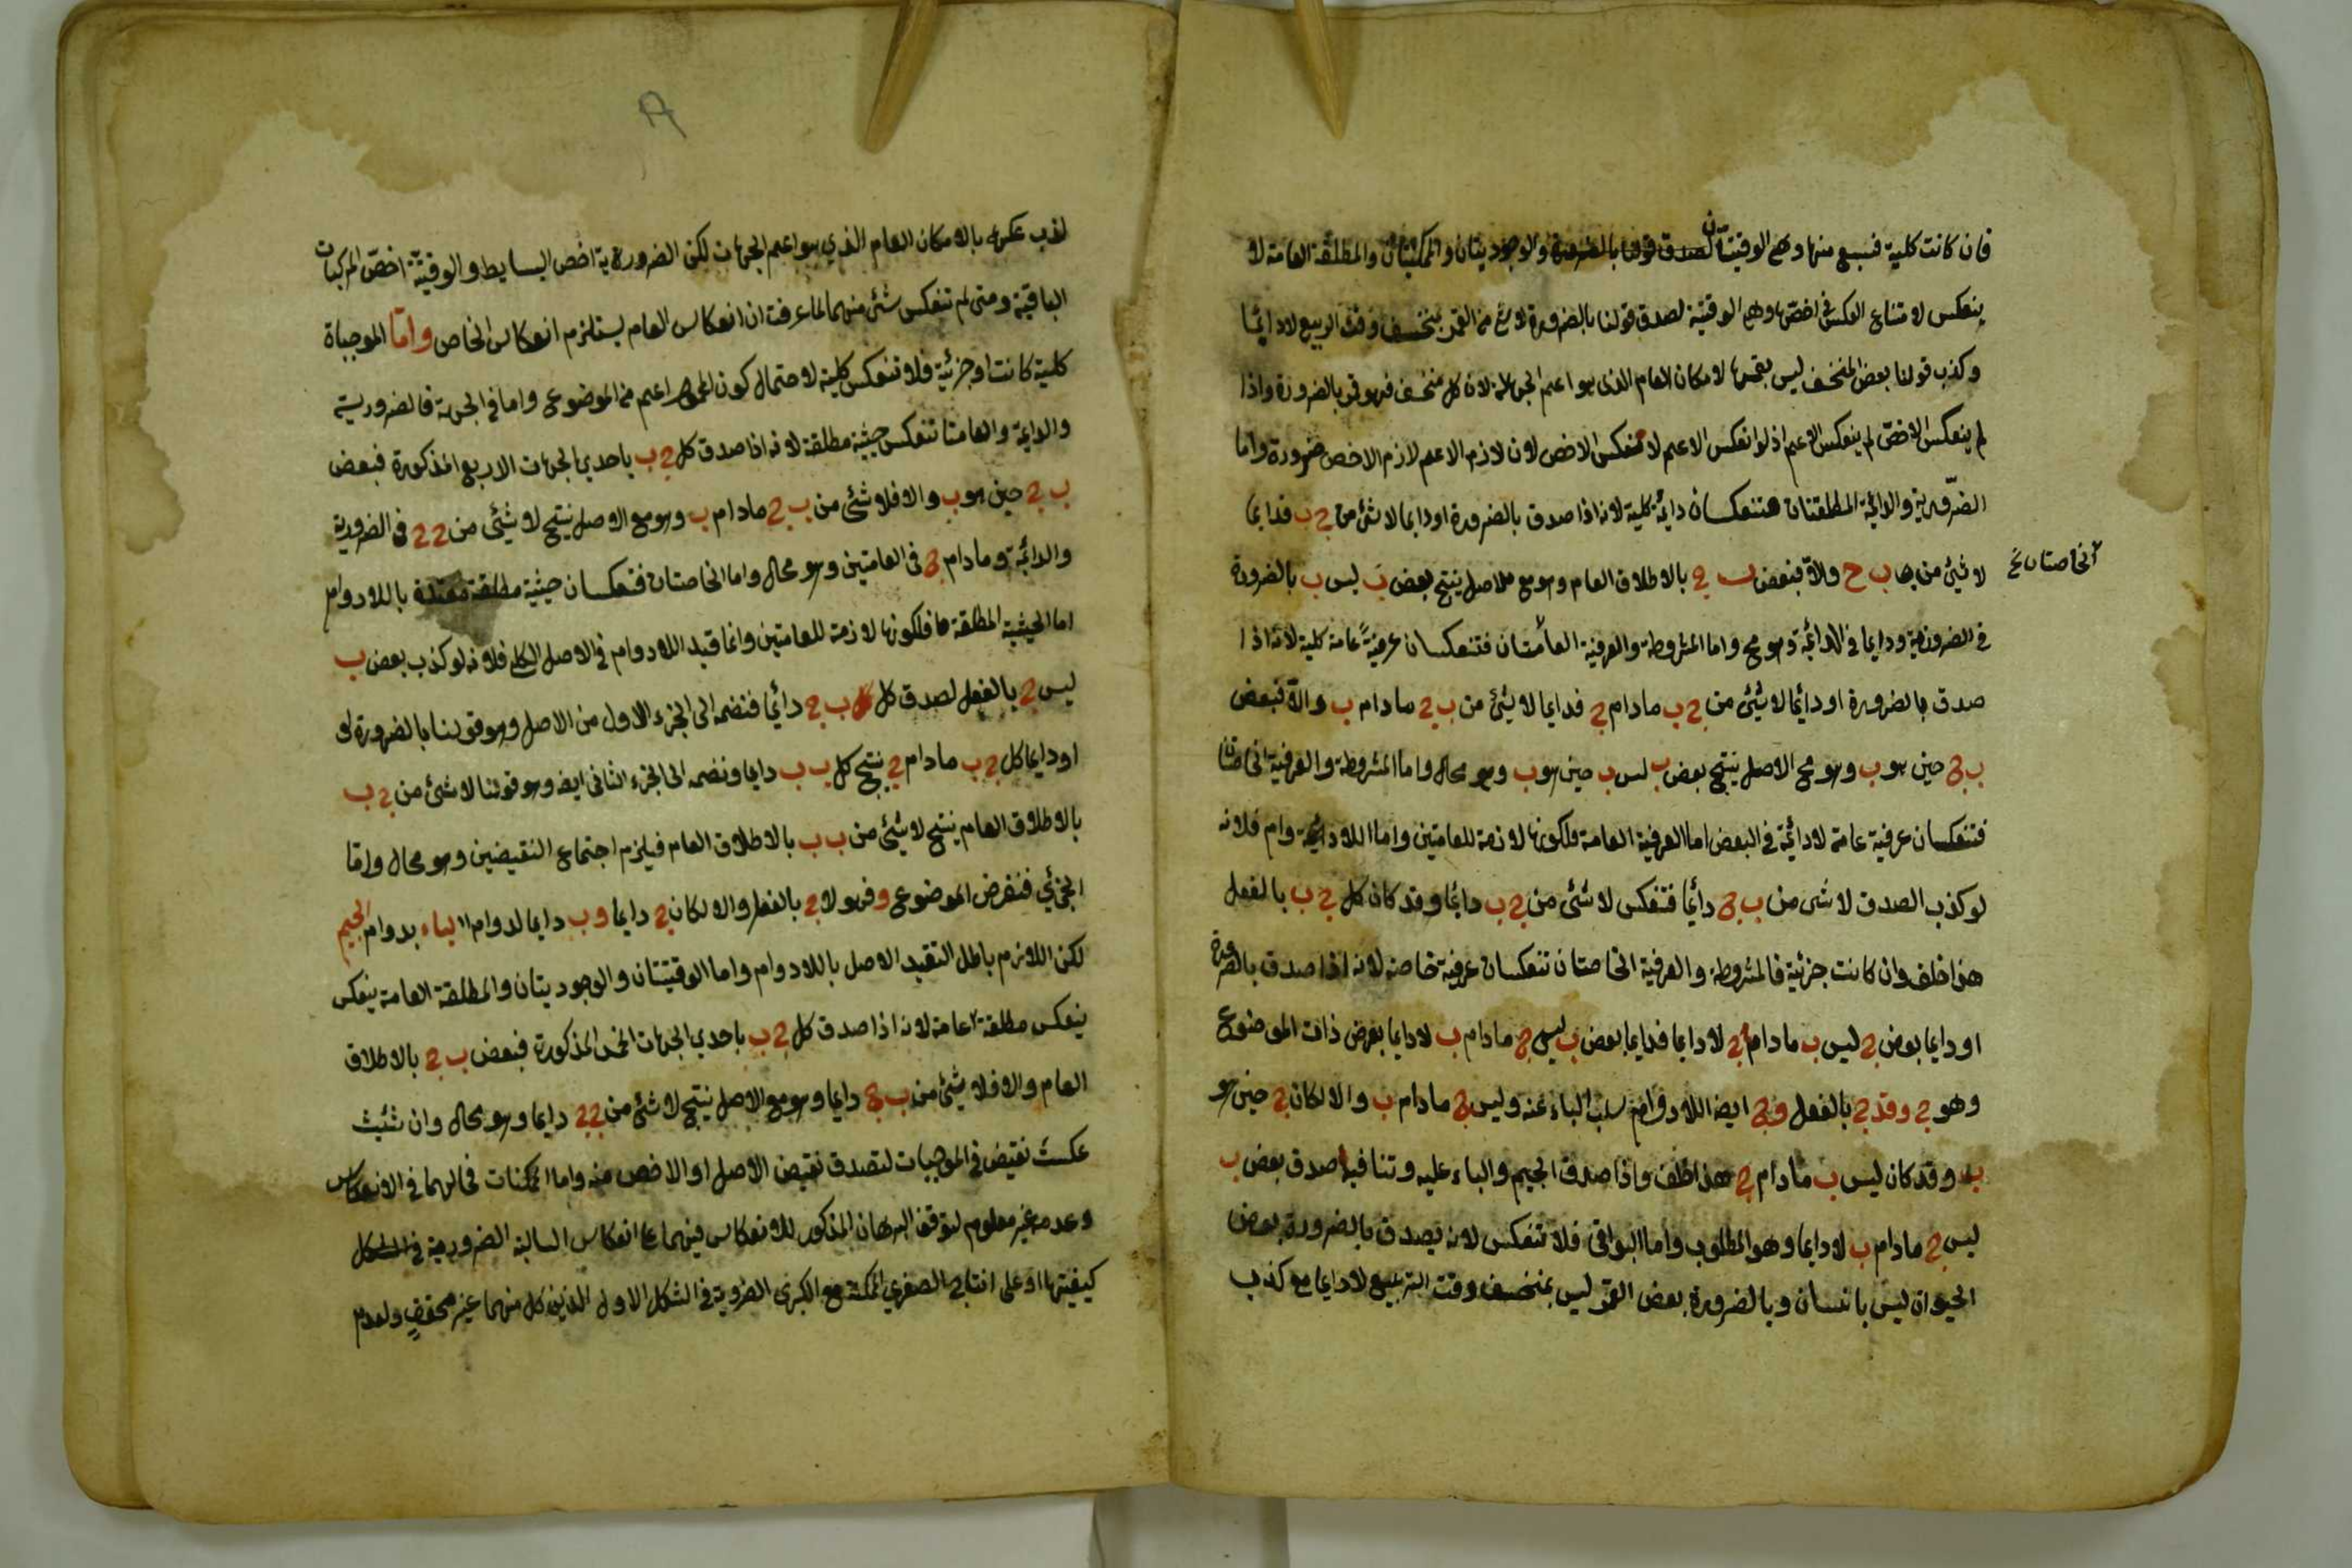 فان كانت كلية فسبع منها وهى الوقتيتان لصدق قولنا بالضرورة والوجوديتان والممكنتان والمطلقة العامة لا
ينعكس لامتناع العكس فى اخصها وهى الوقتية لصدق قولنا بالضرورة لا شئ من القمر بمنخسف وقت الربيع لا دائما
وكذب قولنا بعض المنخسف ليس بقمر بالامكان العام الذى هو اعم الجهات لان كل منخسف فهو قمر بالضرورة واذا
لم ينعكس الاخص لم ينعكس الاعم اذ لو انعكس الاعم لانعكس الاخص لان لازم الاعم لازم الاخص ضرورة واما
الضرورية والدائمة المطلقتان فتنعكسان دائمة كلية لانه اذا صدق بالضرورة او دايما لا شئ من ج ب فدايما
لا شئ من ب ج والا فبعض ب ج بالاطلاق العام وهو مع الاصل ينتج بعض ب ليس ب بالضرورة
الخاصتان
فى الضرورية ودايما فى الدائمة وهو مح واما المشروطة والعرفية العامتان فتنعكسان عرفية عامة كلية لانه اذا
صدق بالضرورة او دائما لا شئ من ج ب مادام ج فدايما لا شئ من ب ج مادام ب والا فبعض
ب ج حين هو ب وهو مع الاصل ينتج بعض ب ليس ب حين هو ب وهو محال واما المشروطة والعرفية الخاصتان
فتنعكسان عرفية عامة لا دائمة فى البعض اما العرفية العامة فلكونها لازمة للعامتين واما اللادوام فلانه
لو كذب لصدق لا شئ من ب ج دائما فتنعكس لا شئ من ج ب دائما وقد كان كل ج ب بالفعل
هذا خلف وان كانت جزئية فالمشروطة والعرفية الخاصتان تنعكسان عرفية خاصة لانه اذا صدق بالضرورة
او دايما بعض ج ليس ب مادام ج لا دايما فدايما بعض ب ليس ج مادام ب لا دايما بفرض ذات الموضوع
وهو ج وفد ج بالفعل و ج ايضا اللادوام سلب الباء عنه وليس ج مادام ب والا لكان ج حين هو
ب وقد كان ليس ب مادام ج هذا خلف واذا صدق الجيم والباء عليه وتنافيا صدق بعض ب
ليس ج مادام ب لا دايما وهو المطلوب واما البواقى فلا تنعكس لانه يصدق بالضرورة بعض
الحيوان ليس بانسان وبالضرورة بعض القمر ليس بمنخسف وقت التربيع لا دايما مع كذب
لذب عكسها بالامكان العام الذي هو اعم الجهات لكن الضرورية اخص البسايط والوقتية اخص المركبات
الباقية ومتى لم تنعكس شئ منهما لما عرفت ان انعكاس العام يستلزم انعكاس الخاص واما الموجباة
كلية كانت او جزئية فلا تنعكس كلية لاحتمال كون المحمول اعم من الموضوع واما فى الجهة فالضرورية
والدايمة والعامتا تنعكس حينية مطلقة لانه اذا صدق كل ج ب باحدي الجهات الاربع المذكورة فبعض
ب ج حين هو ب والا فلا شئ من ب ج مادام ب وهو مع الاصل ينتج لا شئ من ج ج فى الضرورية
والدائمة ومادام ج فى العامتين وهو محال واما الخاصتان فتنعكسان حينية مطلقة مقيدة باللادوام
اما الحينية المطلقة فلكونها لازمة للعامتين وانما قيد اللادوام فى الاصل الكلى فلانه لو كذب بعض ب
ليس ج بالفعل لصدق كل ب ج دائما فنضمه الى الجزء الاول من الاصل وهو قولنا بالضرورة
او دايما كل ج ب مادام ج ينتج كل ب ب دايما ونضمه الى الجزء الثانى ايضا وهو قولنا لا شئ من ج ب
بالاطلاق العام ينتج لا شئ من ب ب بالاطلاق العام فيلزم اجتماع النقيضين وهو محال واما
الجزئي فنفرض الموضوع وفهو لا ج بالفعل والا لكان ج دايما و ب دايما لدوام الباء بدوام الجيم
لكن اللازم باطل لتقييد الاصل باللادوام واما الوقتيتان والوجوديتان والمطلقة العامة ينعكس
ينعكس مطلقة عامة لانه اذا صدق كل ج ب باحدي الجهات الخمس المذكورة فبعض ب ج بالاطلاق
العام والا فلا شئ من ب ج دايما وهو مع الاصل ينتج لا شئ من ج ج دايما وهو محال وان شئت
عكست نقيض فى الموجبات لتصدق نقيض الاصل او الاخص منه واما الممكنات فحالهما فى الانعكاس
وعدمه غير معلوم لتوقف البرهان المذكور للانعكاس فيهما على انعكاس السالبة الضرورية
كيفيتها او على انتاج الصغري الممكنة مع الكبرى الضرورية فى الشكل الاول الذين كل منهما غير محقق ولعدم